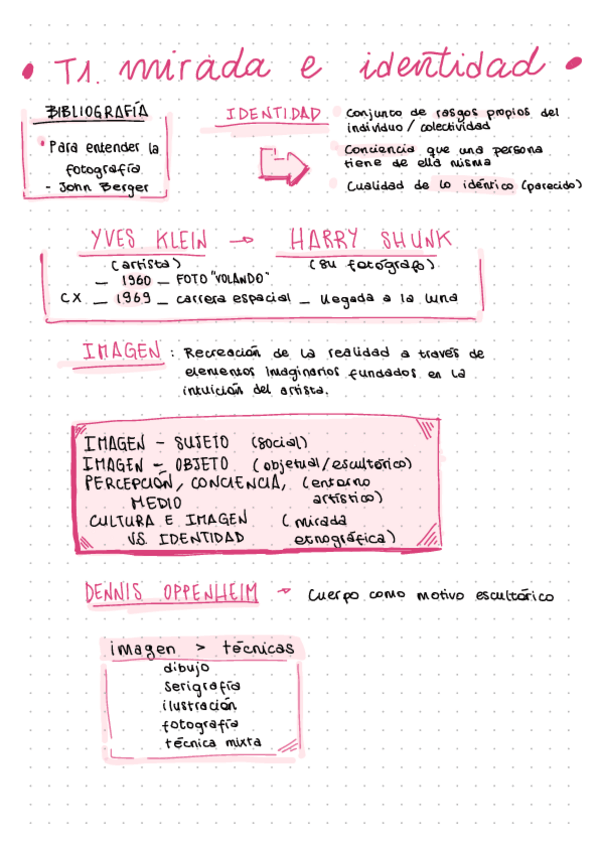 • T1. mirada e identidad •
BIBLIOGRAFÍA
• Para entender la
fotografía
- John Berger
IDENTIDAD
• Conjunto de rasgos propios del
individuo / colectividad
• Conciencia que una persona
tiene de ella misma
• Cualidad de lo idéntico (parecido)
YVES KLEIN → HARRY SHUNK
(artista) (su fotógrafo)
— 1960 — FOTO "VOLANDO"
CX — 1969 — carrera espacial — llegada a la luna
IMAGEN : Recreación de la realidad a través de
elementos imaginarios fundados en la
intuición del artista.
IMAGEN - SUJETO (social)
IMAGEN - OBJETO (objetual/escultórico)
PERCEPCIÓN, CONCIENCIA, (entorno
MEDIO artístico)
CULTURA E IMAGEN (mirada
VS. IDENTIDAD etnográfica)
DENNIS OPPENHEIM → Cuerpo como motivo escultórico
imagen > técnicas
dibujo
serigrafía
ilustración
fotografía
técnica mixta